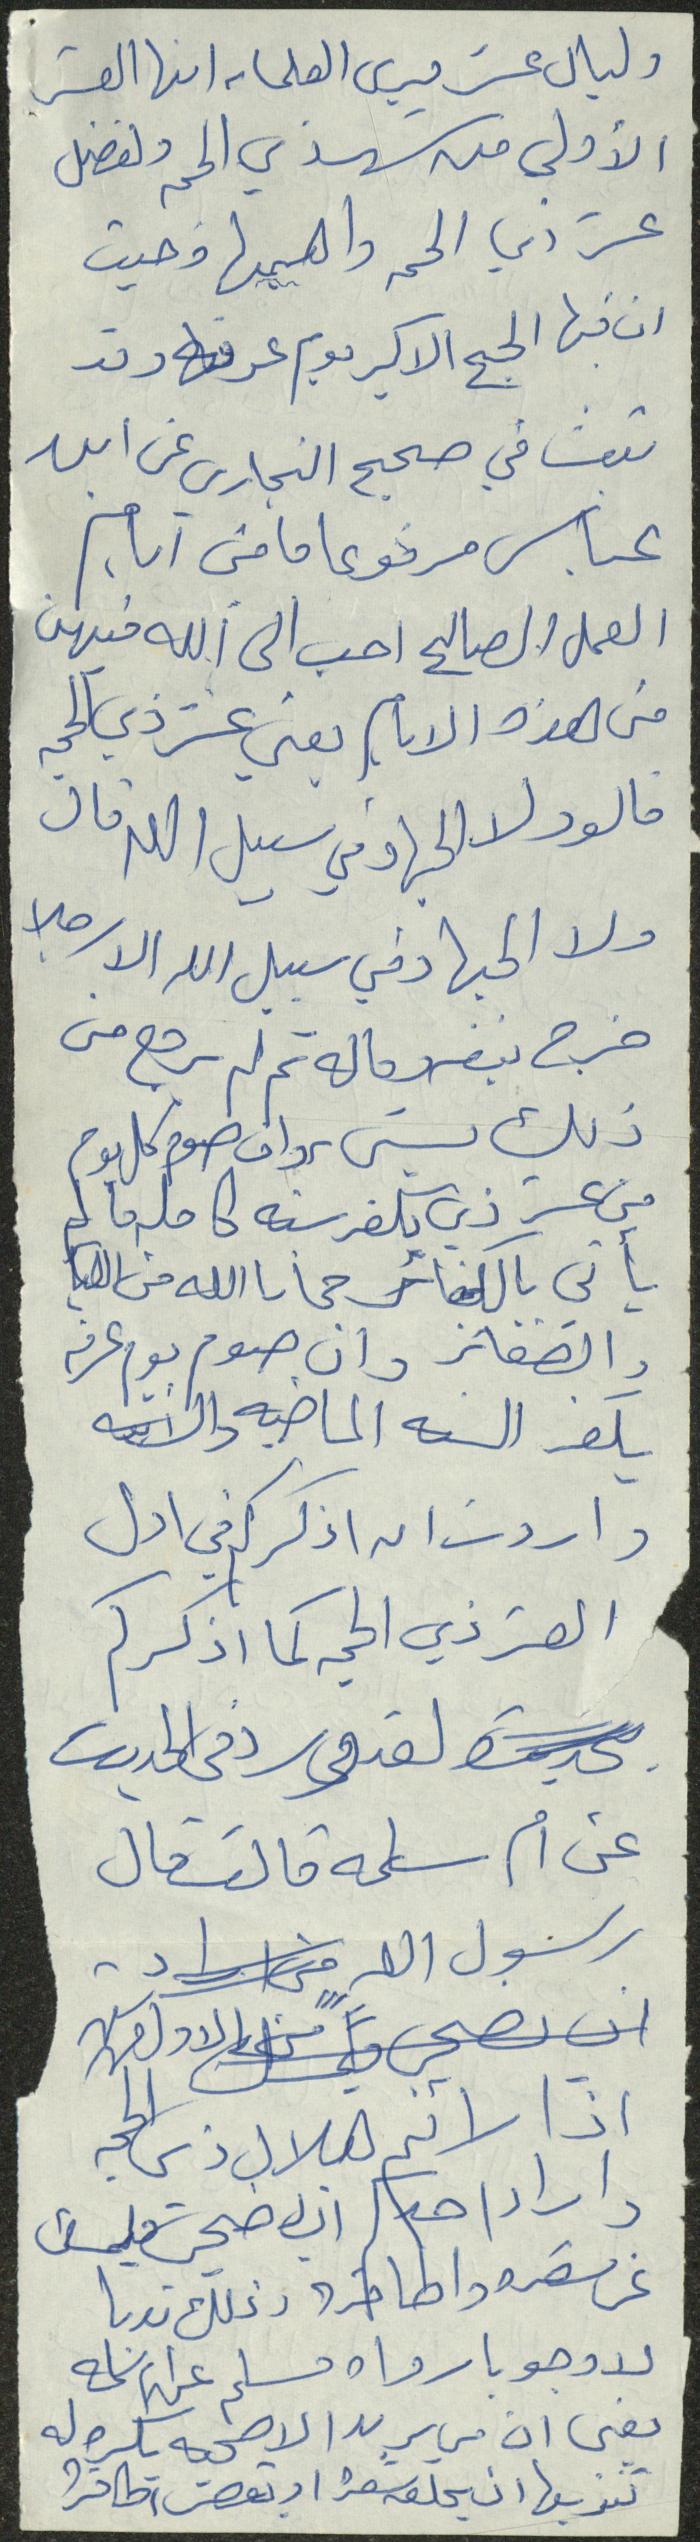 وليال عشر فيرى العلماء انها العشر
الأولى من شهر ذي الحجه ولفضل
عشر ذي الحجه واهميتها فحيث
ان فيها الحج الاكبر يوم عرفه وقد
ثبت في صحيح البخاري عن ابن
عباس مرفوعا ما من أيام
العمل الصالح احب الى الله فيهن
من هذه الايام يعني عشر ذي الحجه
قالوا ولا الجهاد في سبيل الله قال
ولا الجهاد في سبيل الله الا رجلا
خرج بنفسه وماله ثم لم يرجع من
ذلك بشيء وان صوم كل يوم
من عشر ذي يكفر سنه كامله ما لم
يأتى بالكبائر حمانا الله من الكبائر
والصغائر وان صوم يوم عرفه
يكفر السنه الماضيه والاتيه
واردت ان اذكركم في اول
العشر ذي الحجه كما اذكركم
لقد ورد في الحديث
عن ام سلمه قالت قال
رسول الله من اراد
ان يضحي
اذا رأيتم هلال ذي الحجه
واراد احدكم ان يضحي فليمسك
عن شعره واظافره وذلك ندبا
لا وجوبا رواه مسلم عن ام سلمه
يعني ان من يريد الاضحيه يكره له
تنزيها ان يحلق شعرا او يقص اظافرا